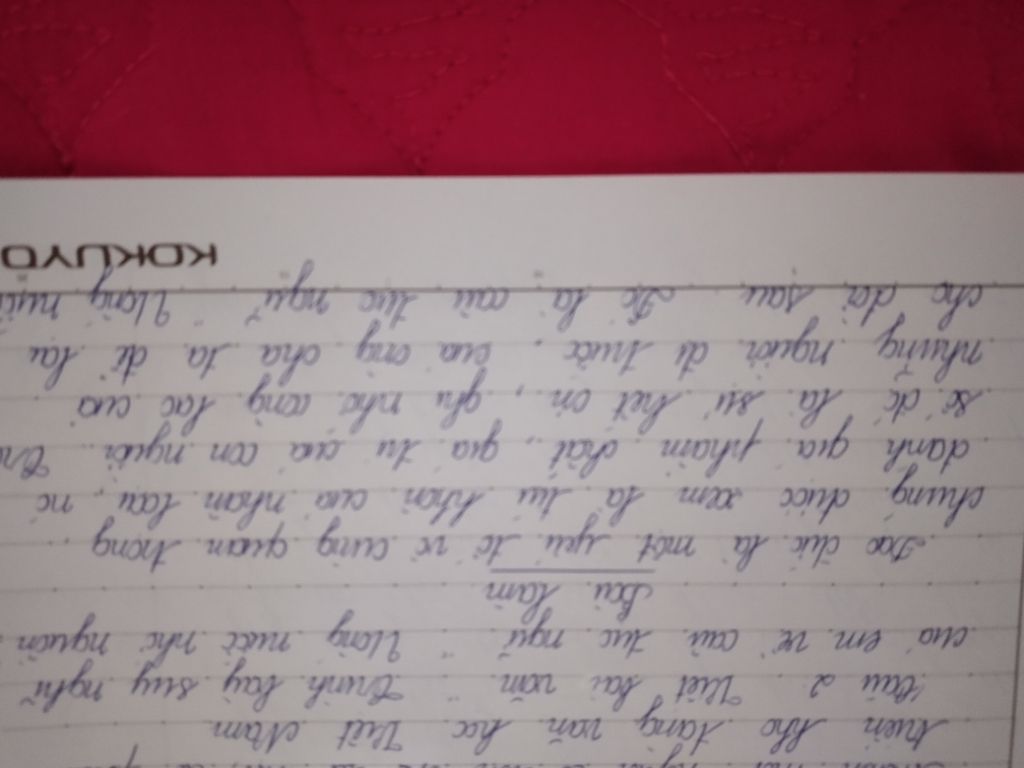 triển kho tàng văn học Việt Nam
Câu 2. Viết bài văn: Trình bày suy nghĩ
của em về câu tục ngữ: "Uống nước nhớ nguồn
Bài làm
Đạo đức là một yếu tố vô cùng quan trọng,
chúng được xem là của nhân nó
đánh giá phẩm chất, giá trị của con người.
số đó là sự biết ơn, ghi nhớ công lao của
những người đi trước, của ông cha ta để lại
cho đời sau. Đó là câu tục ngữ "Uống nước
KOKUYO